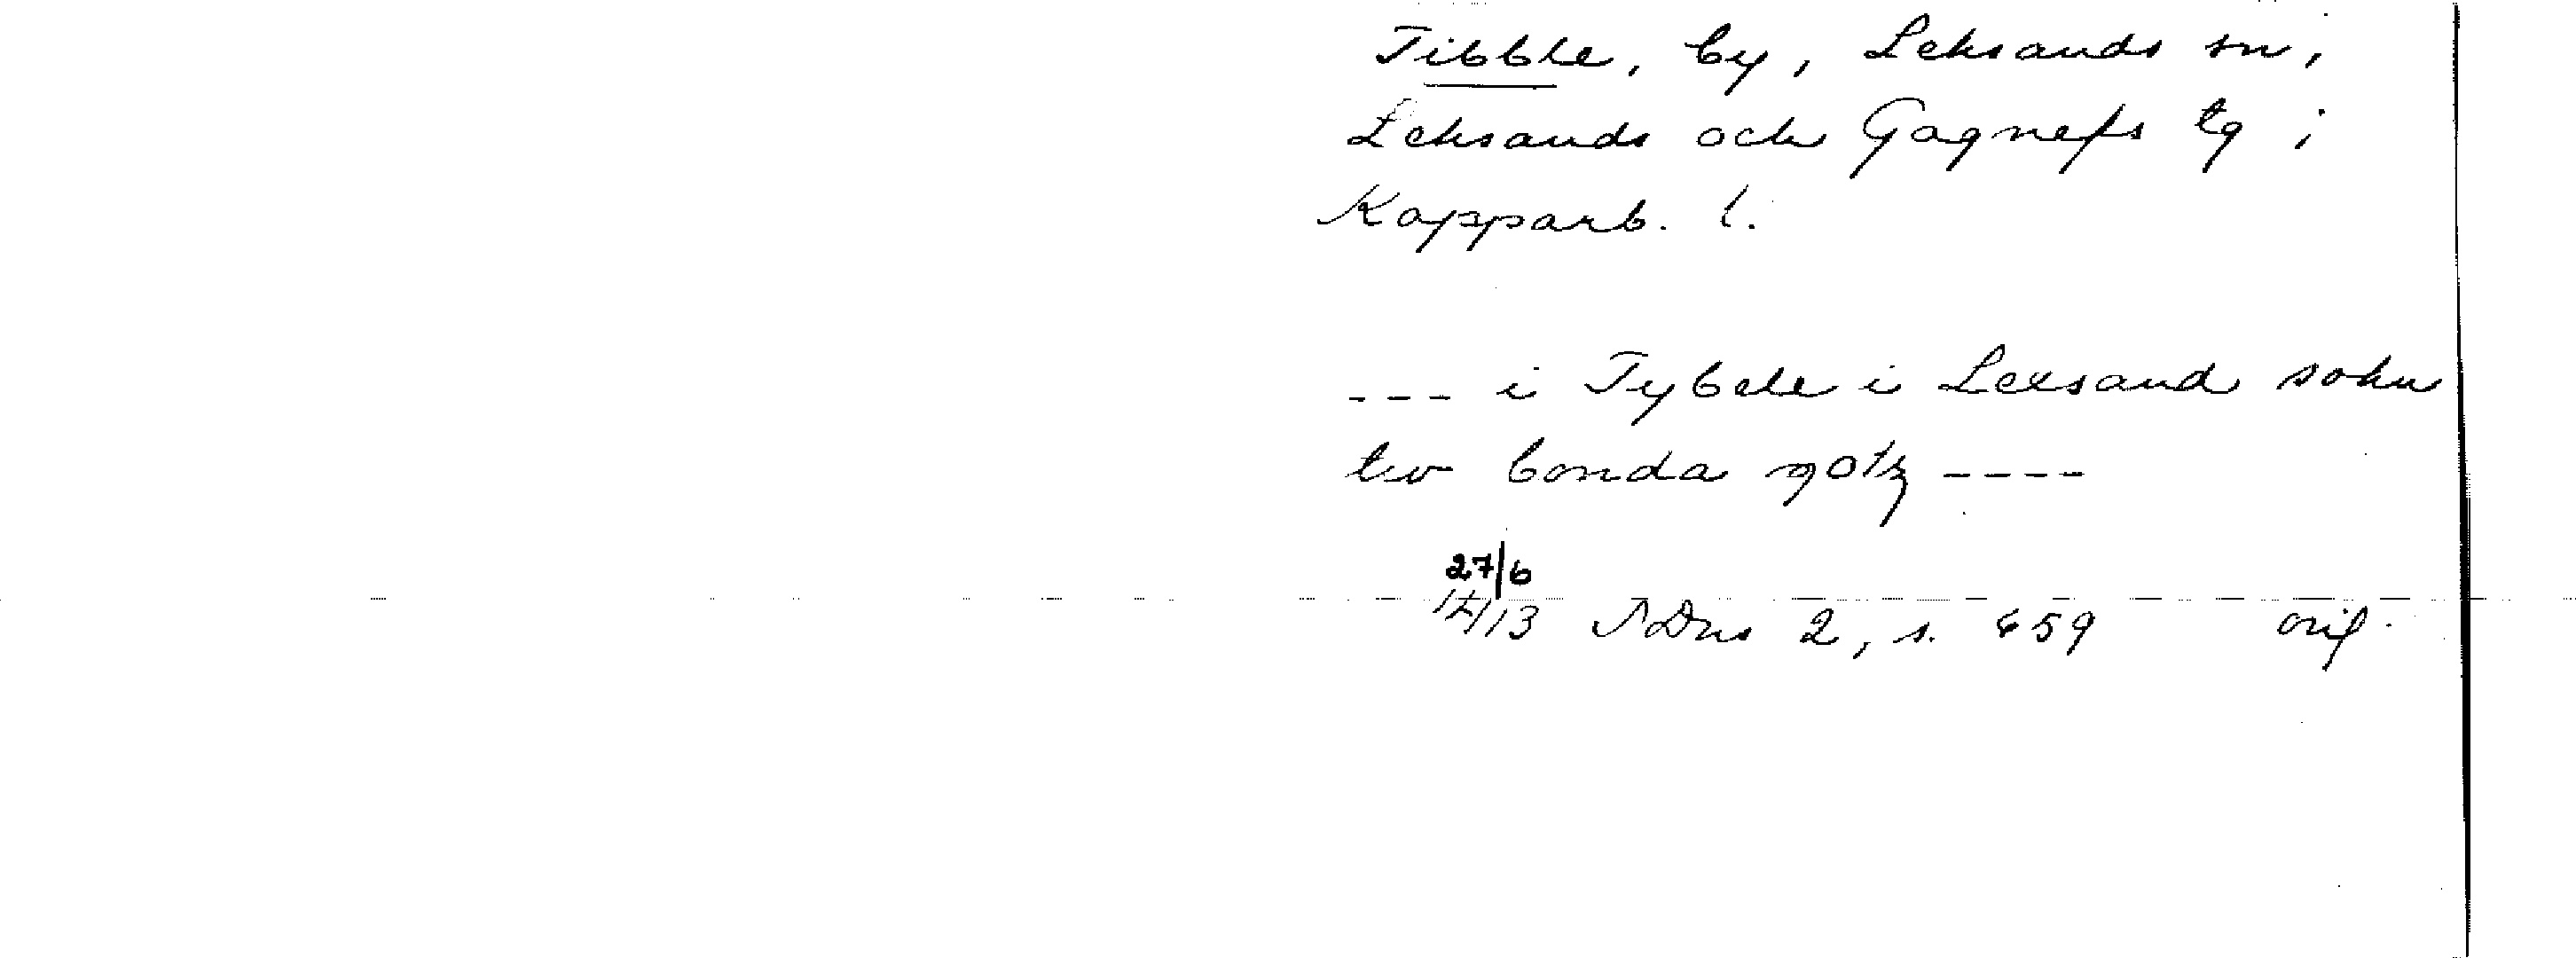 Tibble, by, Leksands sn,
Leksands och Gagnefs tg i
Kopparb. l.
--- i Tybele i Lexsand sokn
tw bonda gotz ----
27/6
1413 SDns 2, s. 659 orig.